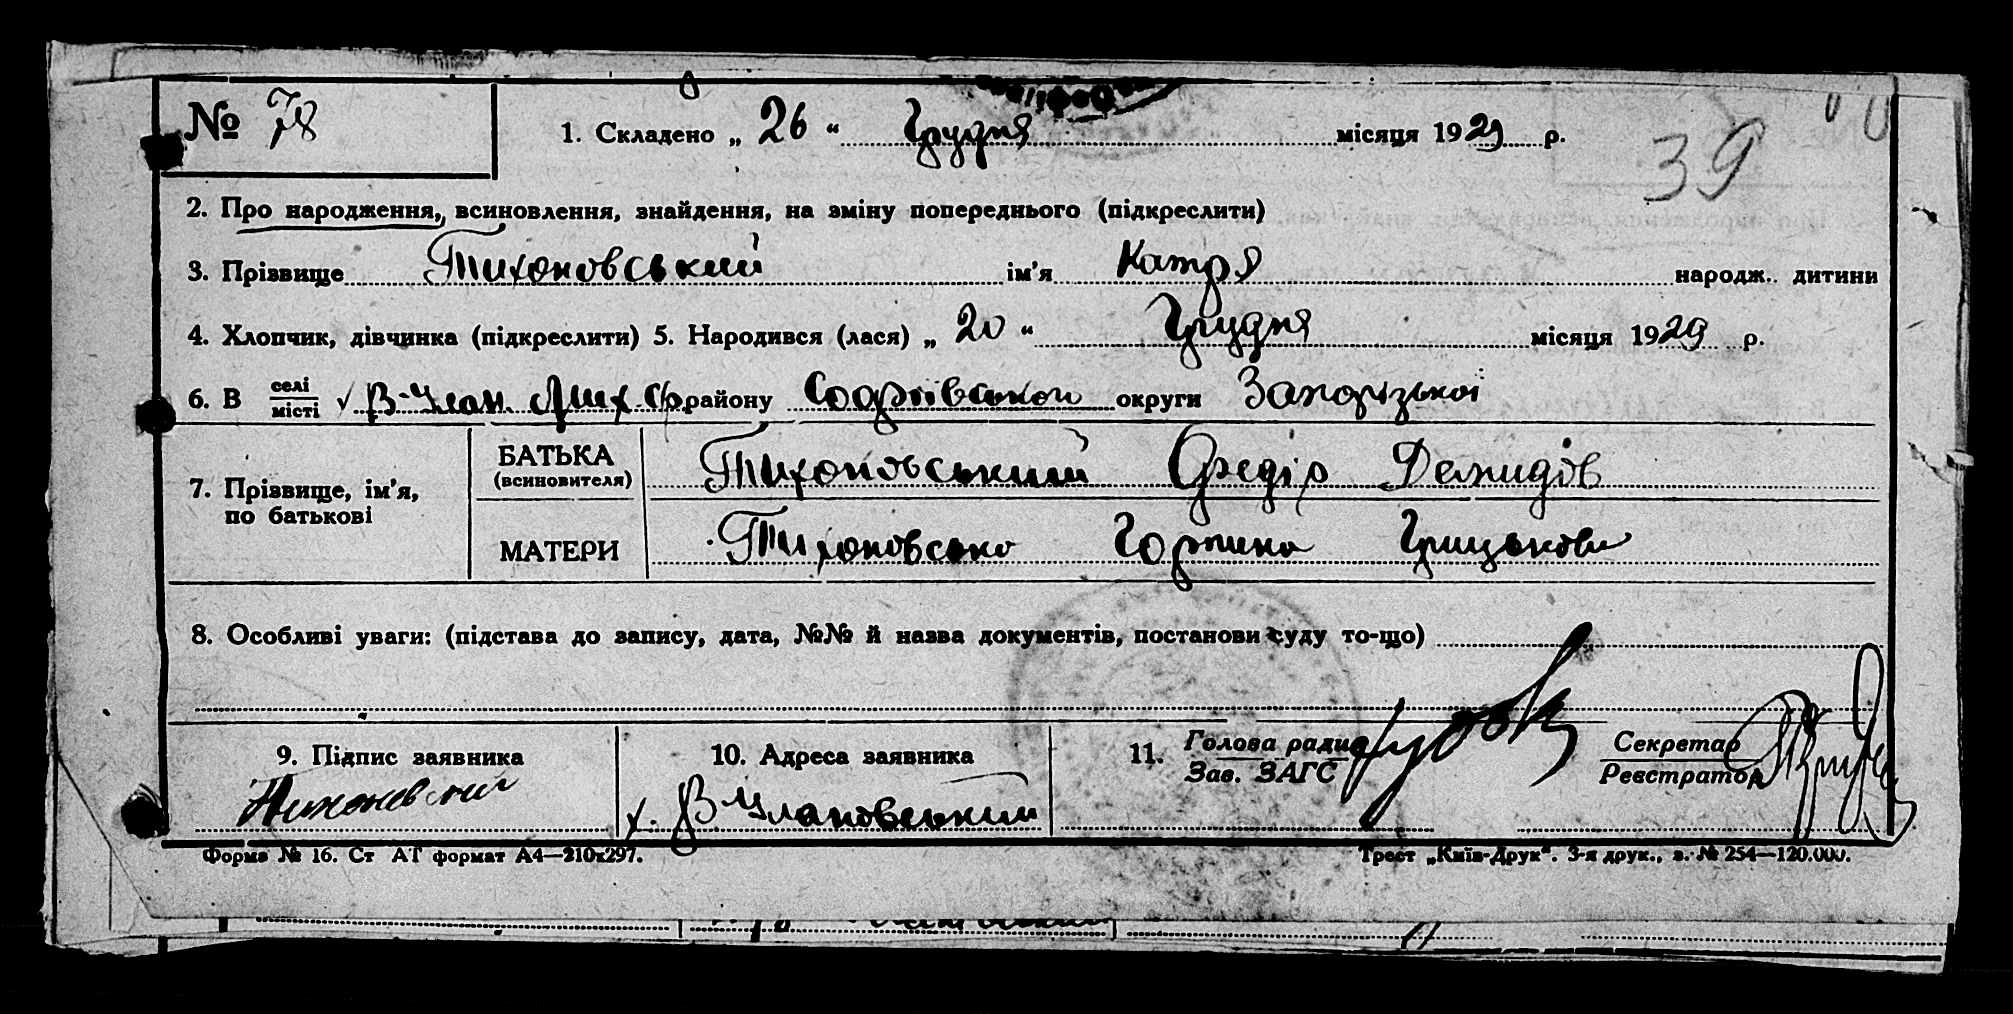 № 78
1. Складено „ 26 “ Грудня місяця 1929 р.
39
2. Про народження, всиновлення, знайдення, на зміну попереднього (підкреслити)
3. Прізвище Тихоновський ім'я Катря народж. дитини
4. Хлопчик, дівчинка (підкреслити) 5. Народився (лася) „ 20 “ Грудня місяця 1929 р.
6. В селі місті В-Улан. району Софіївської округи Запорізької
7. Прізвище, ім'я, по батькові
БАТЬКА (всиновителя) Тихоновський Федір Демидов
МАТЕРИ Тихоновська Горпина Грицькова
8. Особливі уваги: (підстава до запису, дата, №№ й назва документів, постанови суду то-що)
9. Підпис заявника
10. Адреса заявника
11. Голова ради Зав. ЗАГС
Секретар Реєстратор
Тихоновский
х. В-Улановський
Форма № 16. Ст АТ формат А4—210х297.
Трест „Київ-Друк“. 3-я друк., з. № 254—120.000.